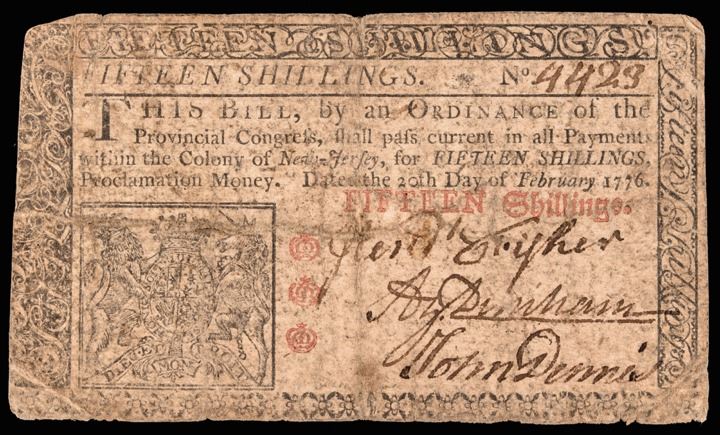 FIFTEEN SHILLINGS.
FIFTEEN SHILLINGS. No. 4423
THIS BILL, by an ORDINANCE of the
Provincial Congreſs, ſhall paſs current in all Payments
within the Colony of New-Jerſey, for FIFTEEN SHILLINGS,
Proclamation Money. Dated the 20th Day of February 1776.
FIFTEEN Shillings.
Az Dunham
John Dennis
MON
Fifteen Shillings